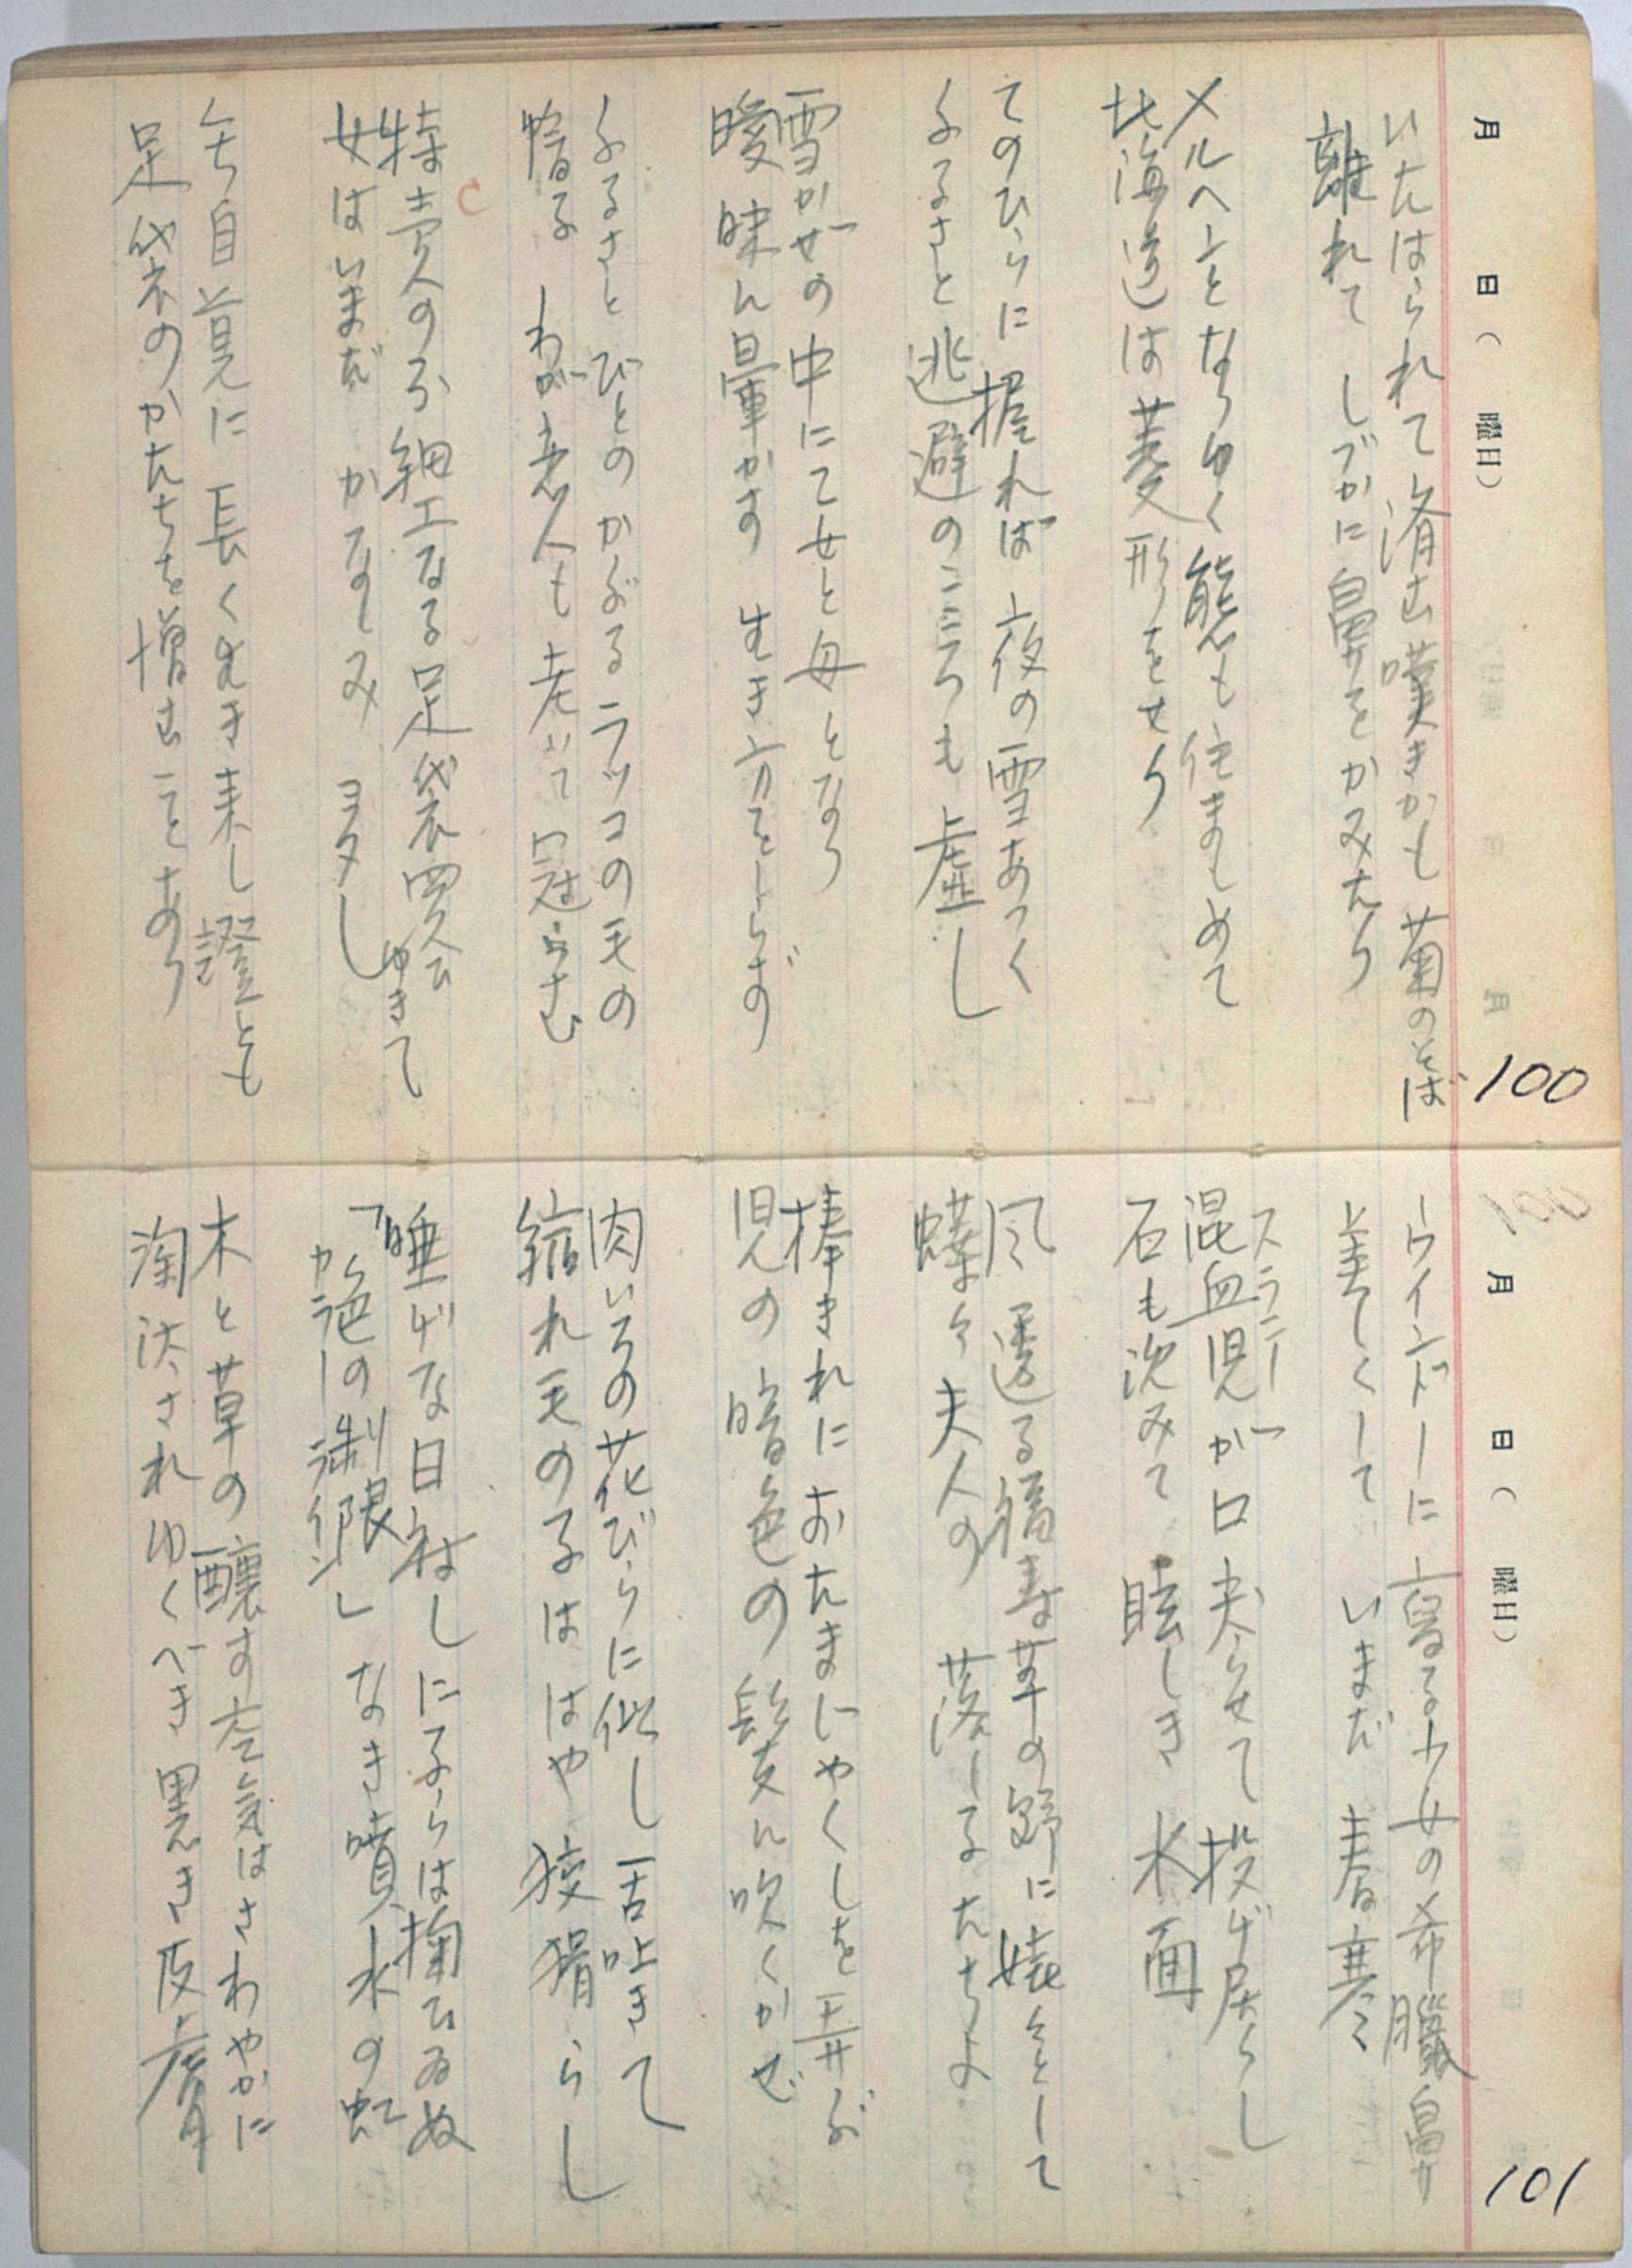 月 日（ 曜日）
100
いたはられて済む嘆きかも 菊のそば
離れて しづかに鼻をかみたり
メルヘンとなりゆく熊も住ましめて
北海道は菱形をせり
てのひらに握れば 夜の雪あつく
ふるさと逃避のこころも虚し
雪かぜの中にて女と母となり
曖昧に暈かす 生き方をしらず
ふるさとびとのかぶるラッコの毛の
帽子 わが恋人も老いて冠らむ
特売の不細工なる足袋買ひゆきて
女はいまだ かなしみヨタし
自首に長く生き来し證とも
足袋のかたちを増すことあり
月 日（ 曜日）
101
ウインドーに寄る少女の希臘鼻
美しくして いまだ 春寒
混血児が口尖らせて投げ居らし
石も沈みて 眩しき 水面
風邊る福寿草の野に
蝶々夫人の 落しるたちよ
棒きれにおたまじやくしを弄ぶ
児の暗色の髪に吹くかぜ
肉いろの花びらに似し舌吐きて
縮れ毛の子ははや 狡猾らし
睡げな日射しに子らは掬ひゐぬ
「色の制限」なき噴水の虹
カラー ライン
木と草の醸す空気はさわやかに
淘汰されゆくべき黒き皮膚